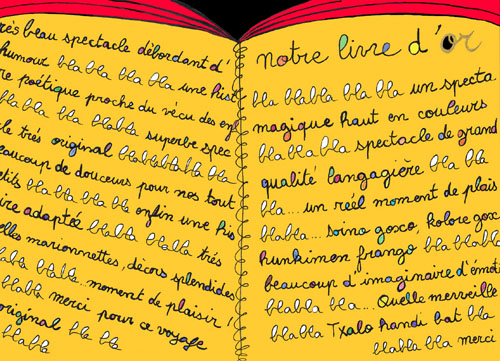 rés beau spectacle débordant d'
humour bla bla bla bla une hist
re poétique proche du vécu des enf
bla bla bla blabla superbe spec
le trés original blablablabla bla
eaucoup de douceurs pour nos tout
etits bla bla bla bla enfin une his
ire adaptée blabla blabla trés
elles marionnettes, décors splendides
blabla blabla. moment de plaisir !
blabla merci pour ce voyage
original bla bla
blabla
notre livre d'or
bla blabla bla bla un specta
magique haut en couleurs
bla bla bla spectacle de grand
qualité langagière bla bla
bla... un réel moment de plais
blabla... soino goxo, kolore goxo
hunkimen frango bla blabla
beaucoup d'imaginaire d'émoti
blabla bla... Quelle merveille
blabla Txalo handi bat bla
blabla bla merci